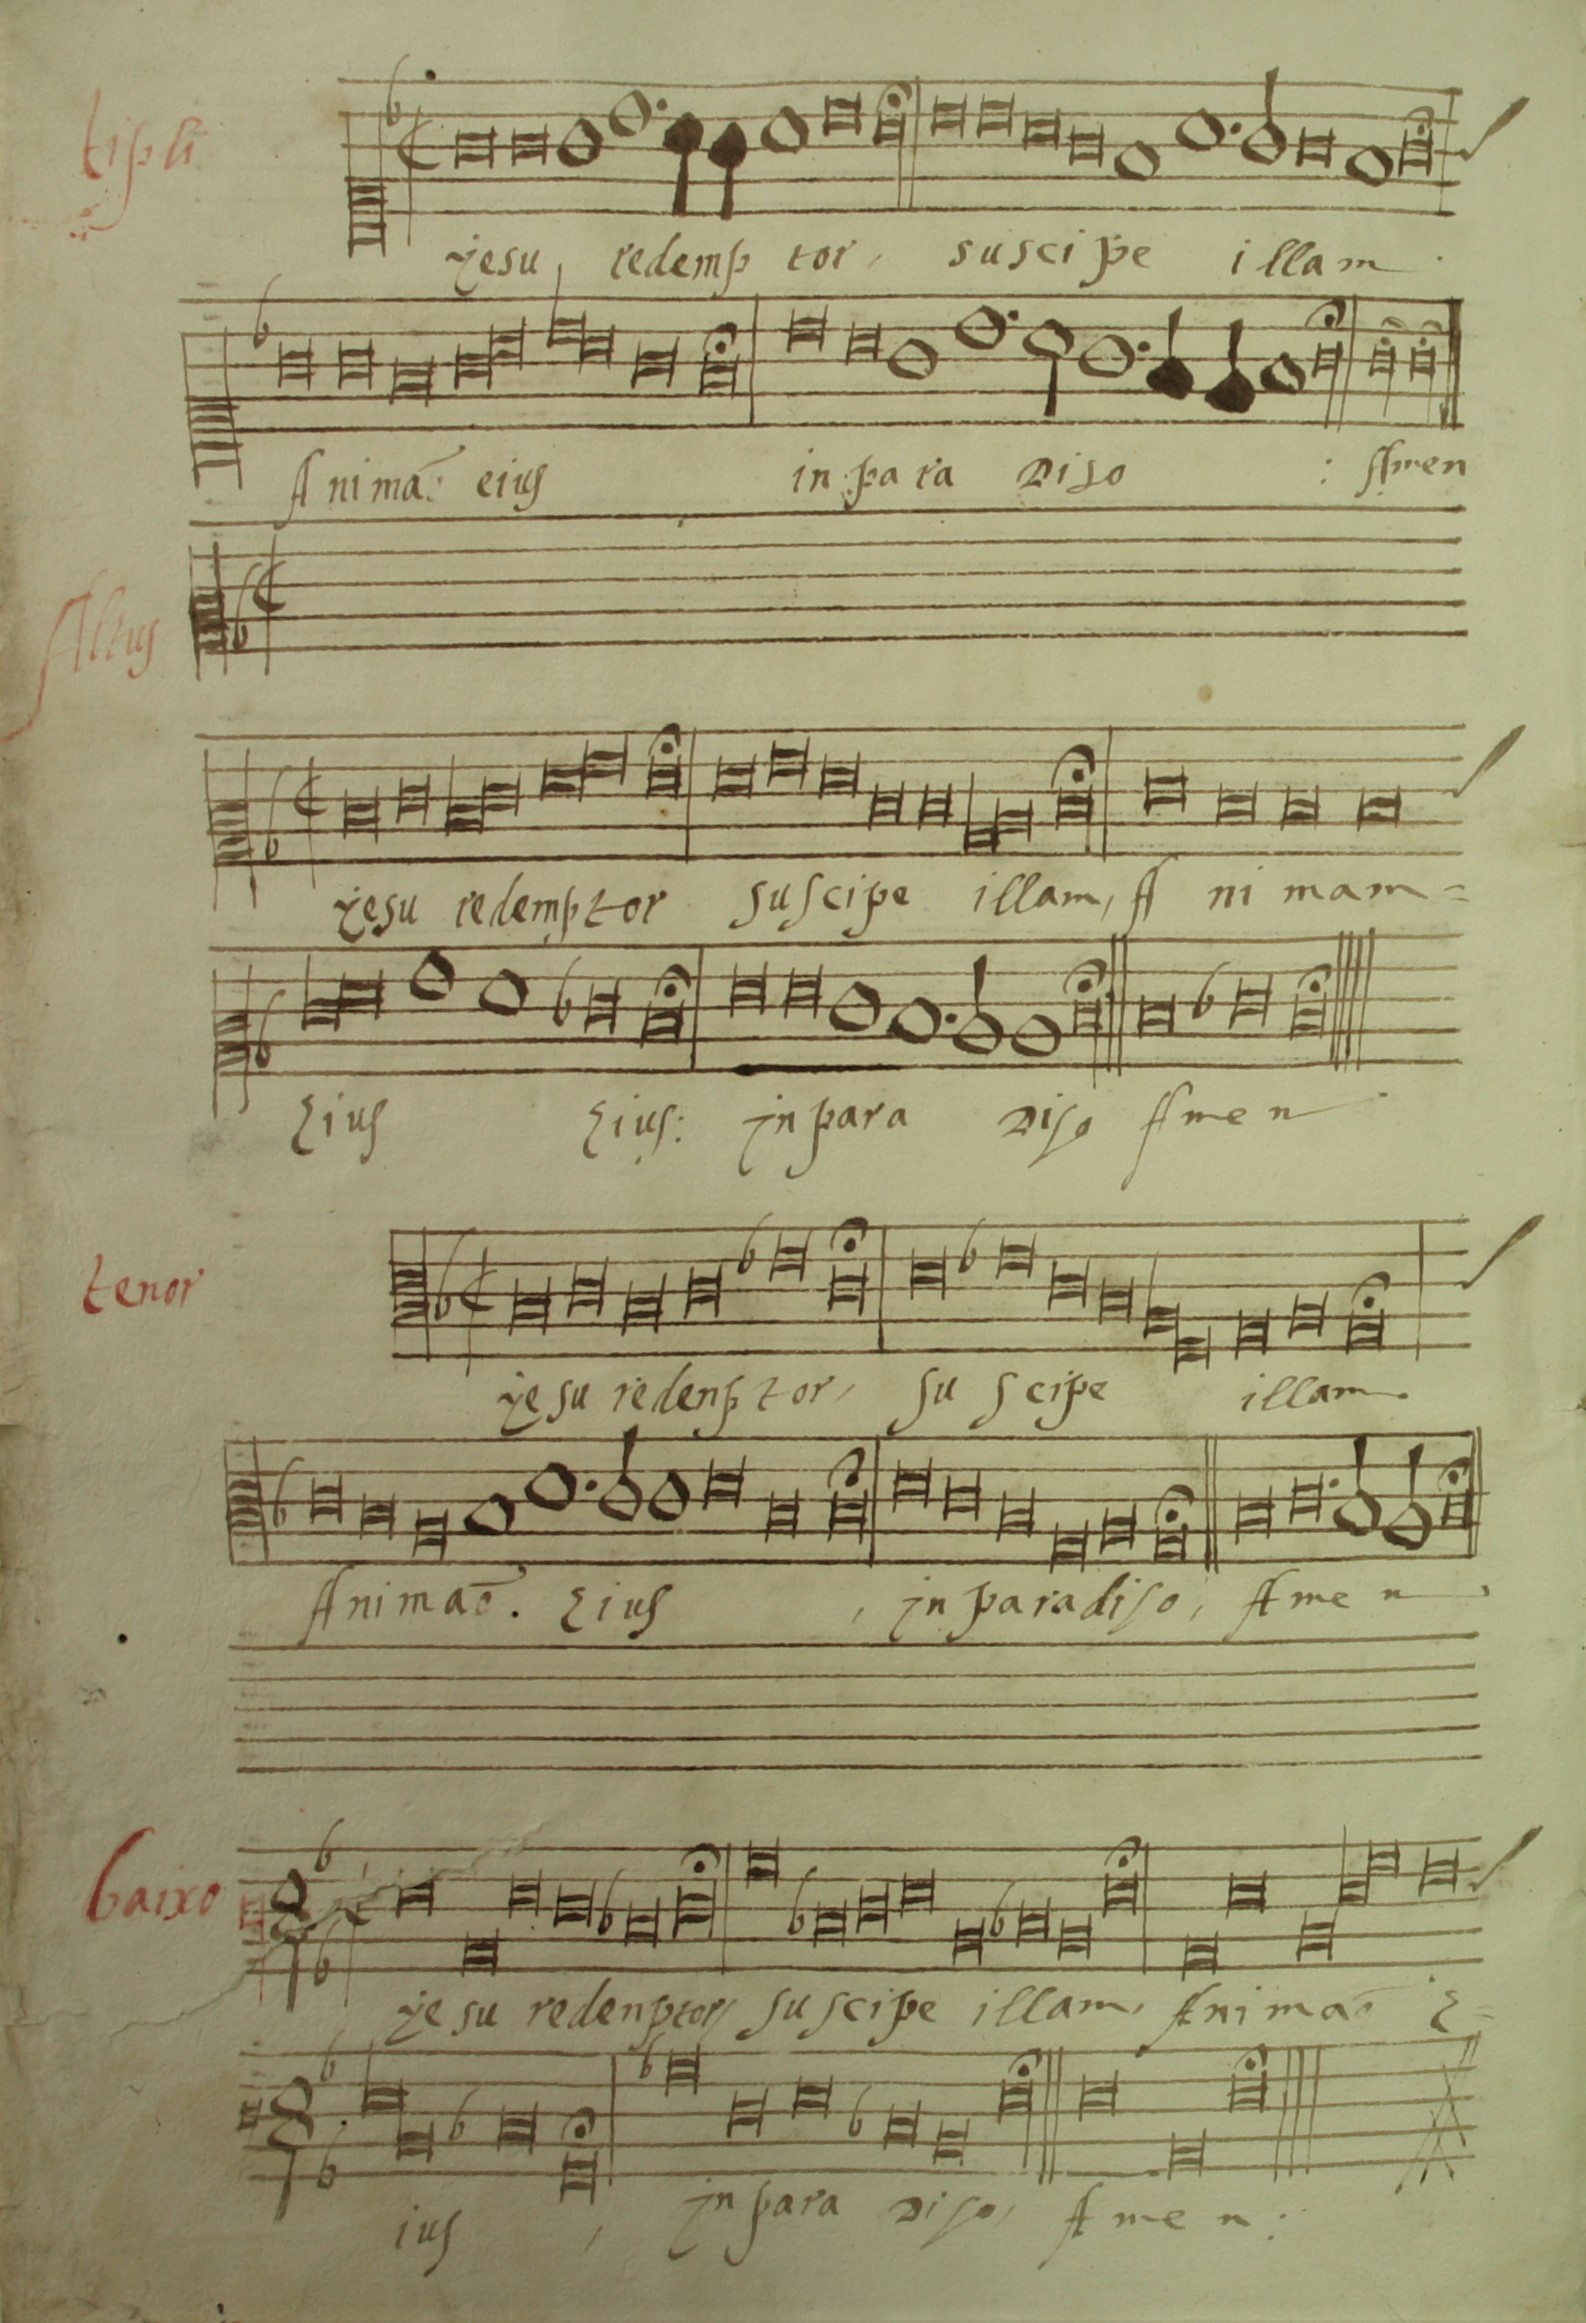 tipli
Jesu, redemp tor, suscipe illam
Animã: eius in para Diso : Amen
Altus
Jesu redemptor suscipe illam, A ni mam=
Eius Eius: in para Diso Amen
tenor
Jesu redenptor, su scipe illam.
Animaõ. Eius , in paradiso, Amen
baixo
Jesu redenptor, suscipe illam, Animaõ E=
ius , in para Diso, Amen: